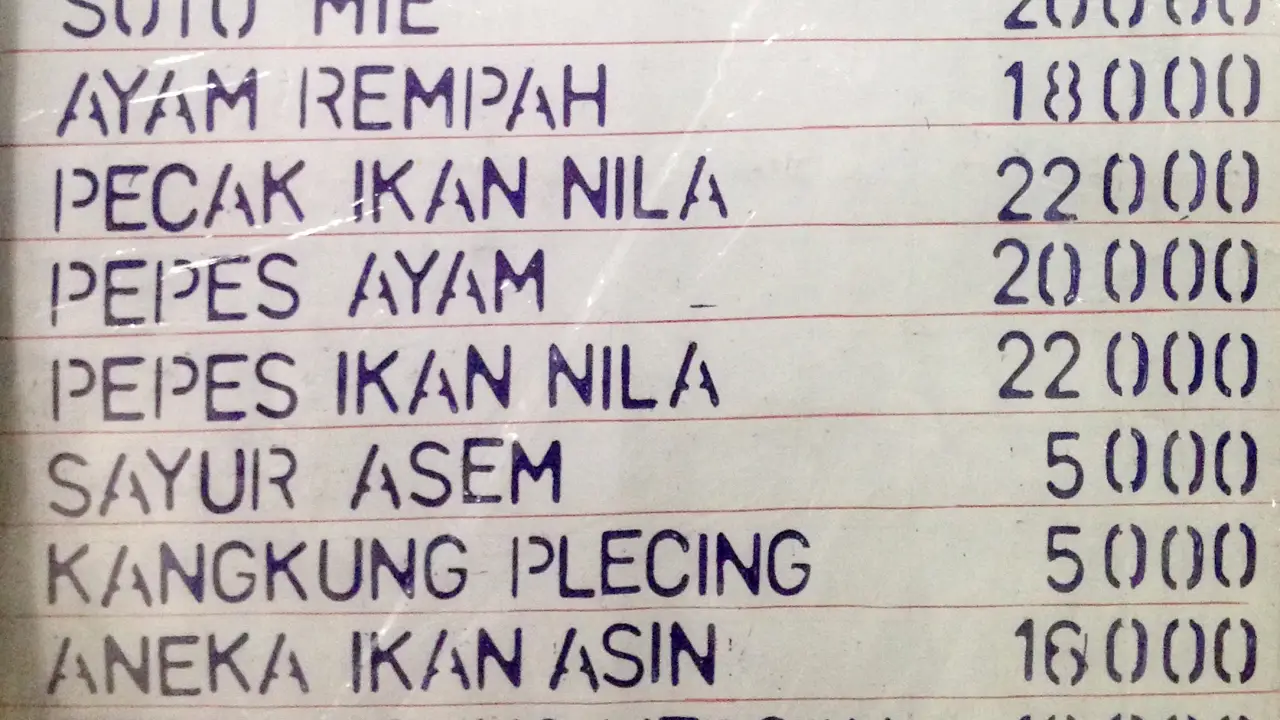 SOTO MIE 20000
AYAM REMPAH 18000
PECAK IKAN NILA 22000
PEPES AYAM 20000
PEPES IKAN NILA 22000
SAYUR ASEM 5000
KANGKUNG PLECING 5000
ANEKA IKAN ASIN 16000